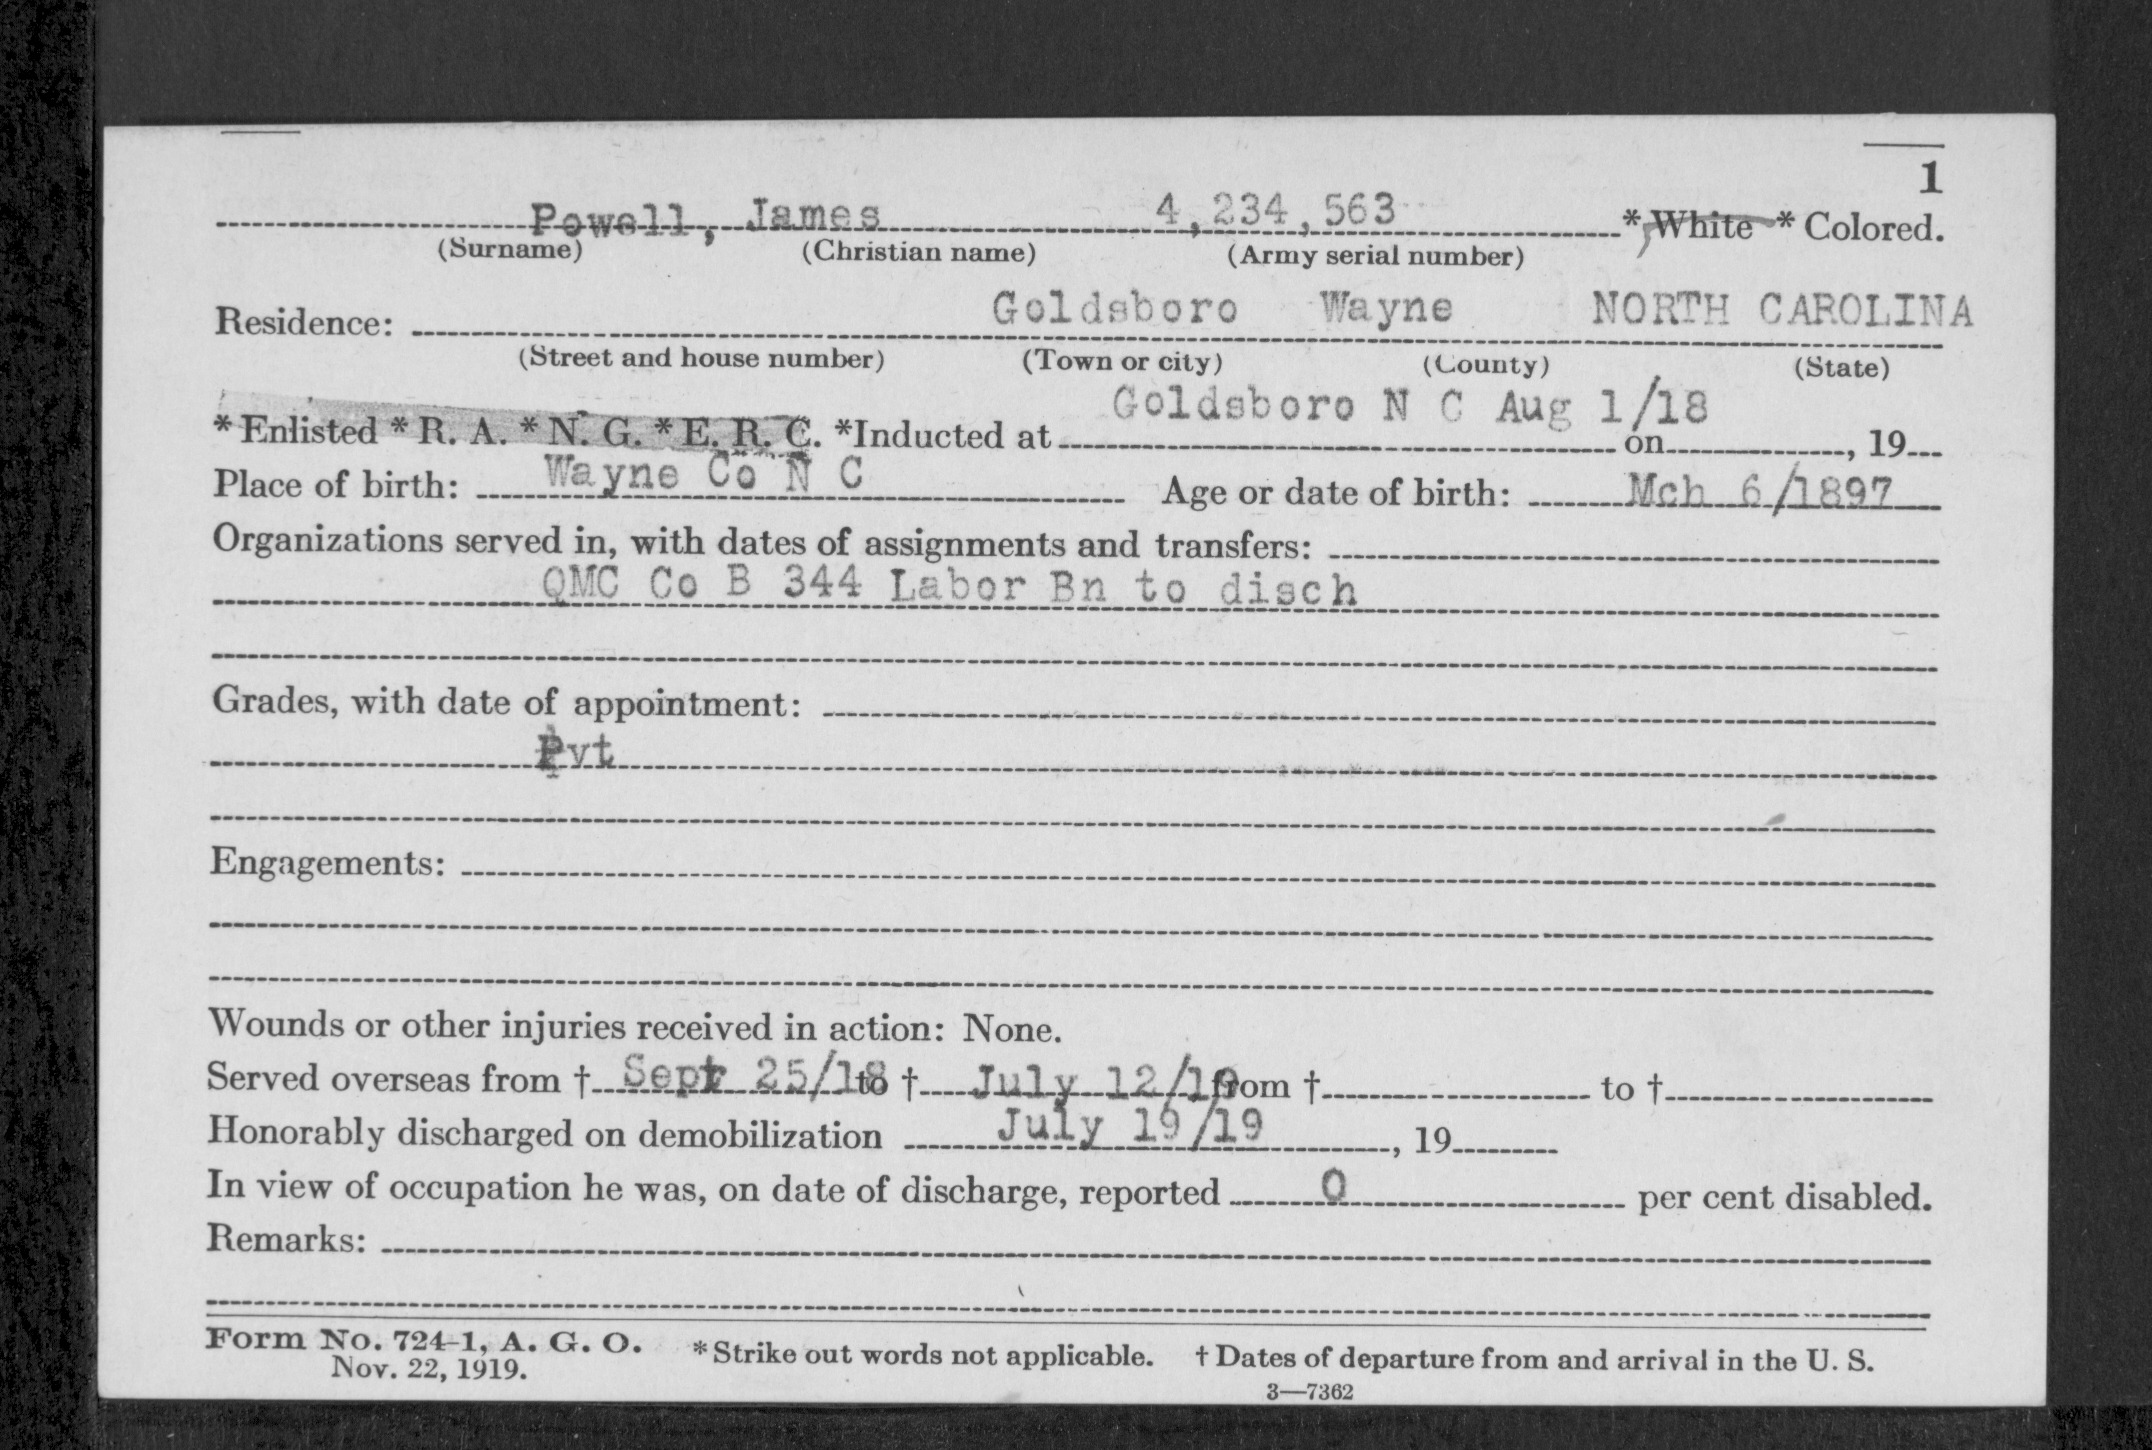 1
Powell, James 4,234,563 * White * Colored.
(Surname) (Christian name) (Army serial number)
Residence: Goldsboro Wayne NORTH CAROLINA
(Street and house number) (Town or city) (County) (State)
Goldsboro N C Aug 1/18
*Enlisted *R. A. *N. G. *E. R. C. *Inducted at on , 19
Place of birth: Wayne Co N C Age or date of birth: Mch 6/1897
Organizations served in, with dates of assignments and transfers:
QMC Co B 344 Labor Bn to disch
Grades, with date of appointment:
Pvt
Engagements:
Wounds or other injuries received in action: None.
Served overseas from † Sept 25/18 to † July 12/19 from † to †
Honorably discharged on demobilization July 19/19 , 19
In view of occupation he was, on date of discharge, reported 0 per cent disabled.
Remarks:
Form No. 724-1, A. G. O. *Strike out words not applicable. † Dates of departure from and arrival in the U. S.
Nov. 22, 1919.
3—7362